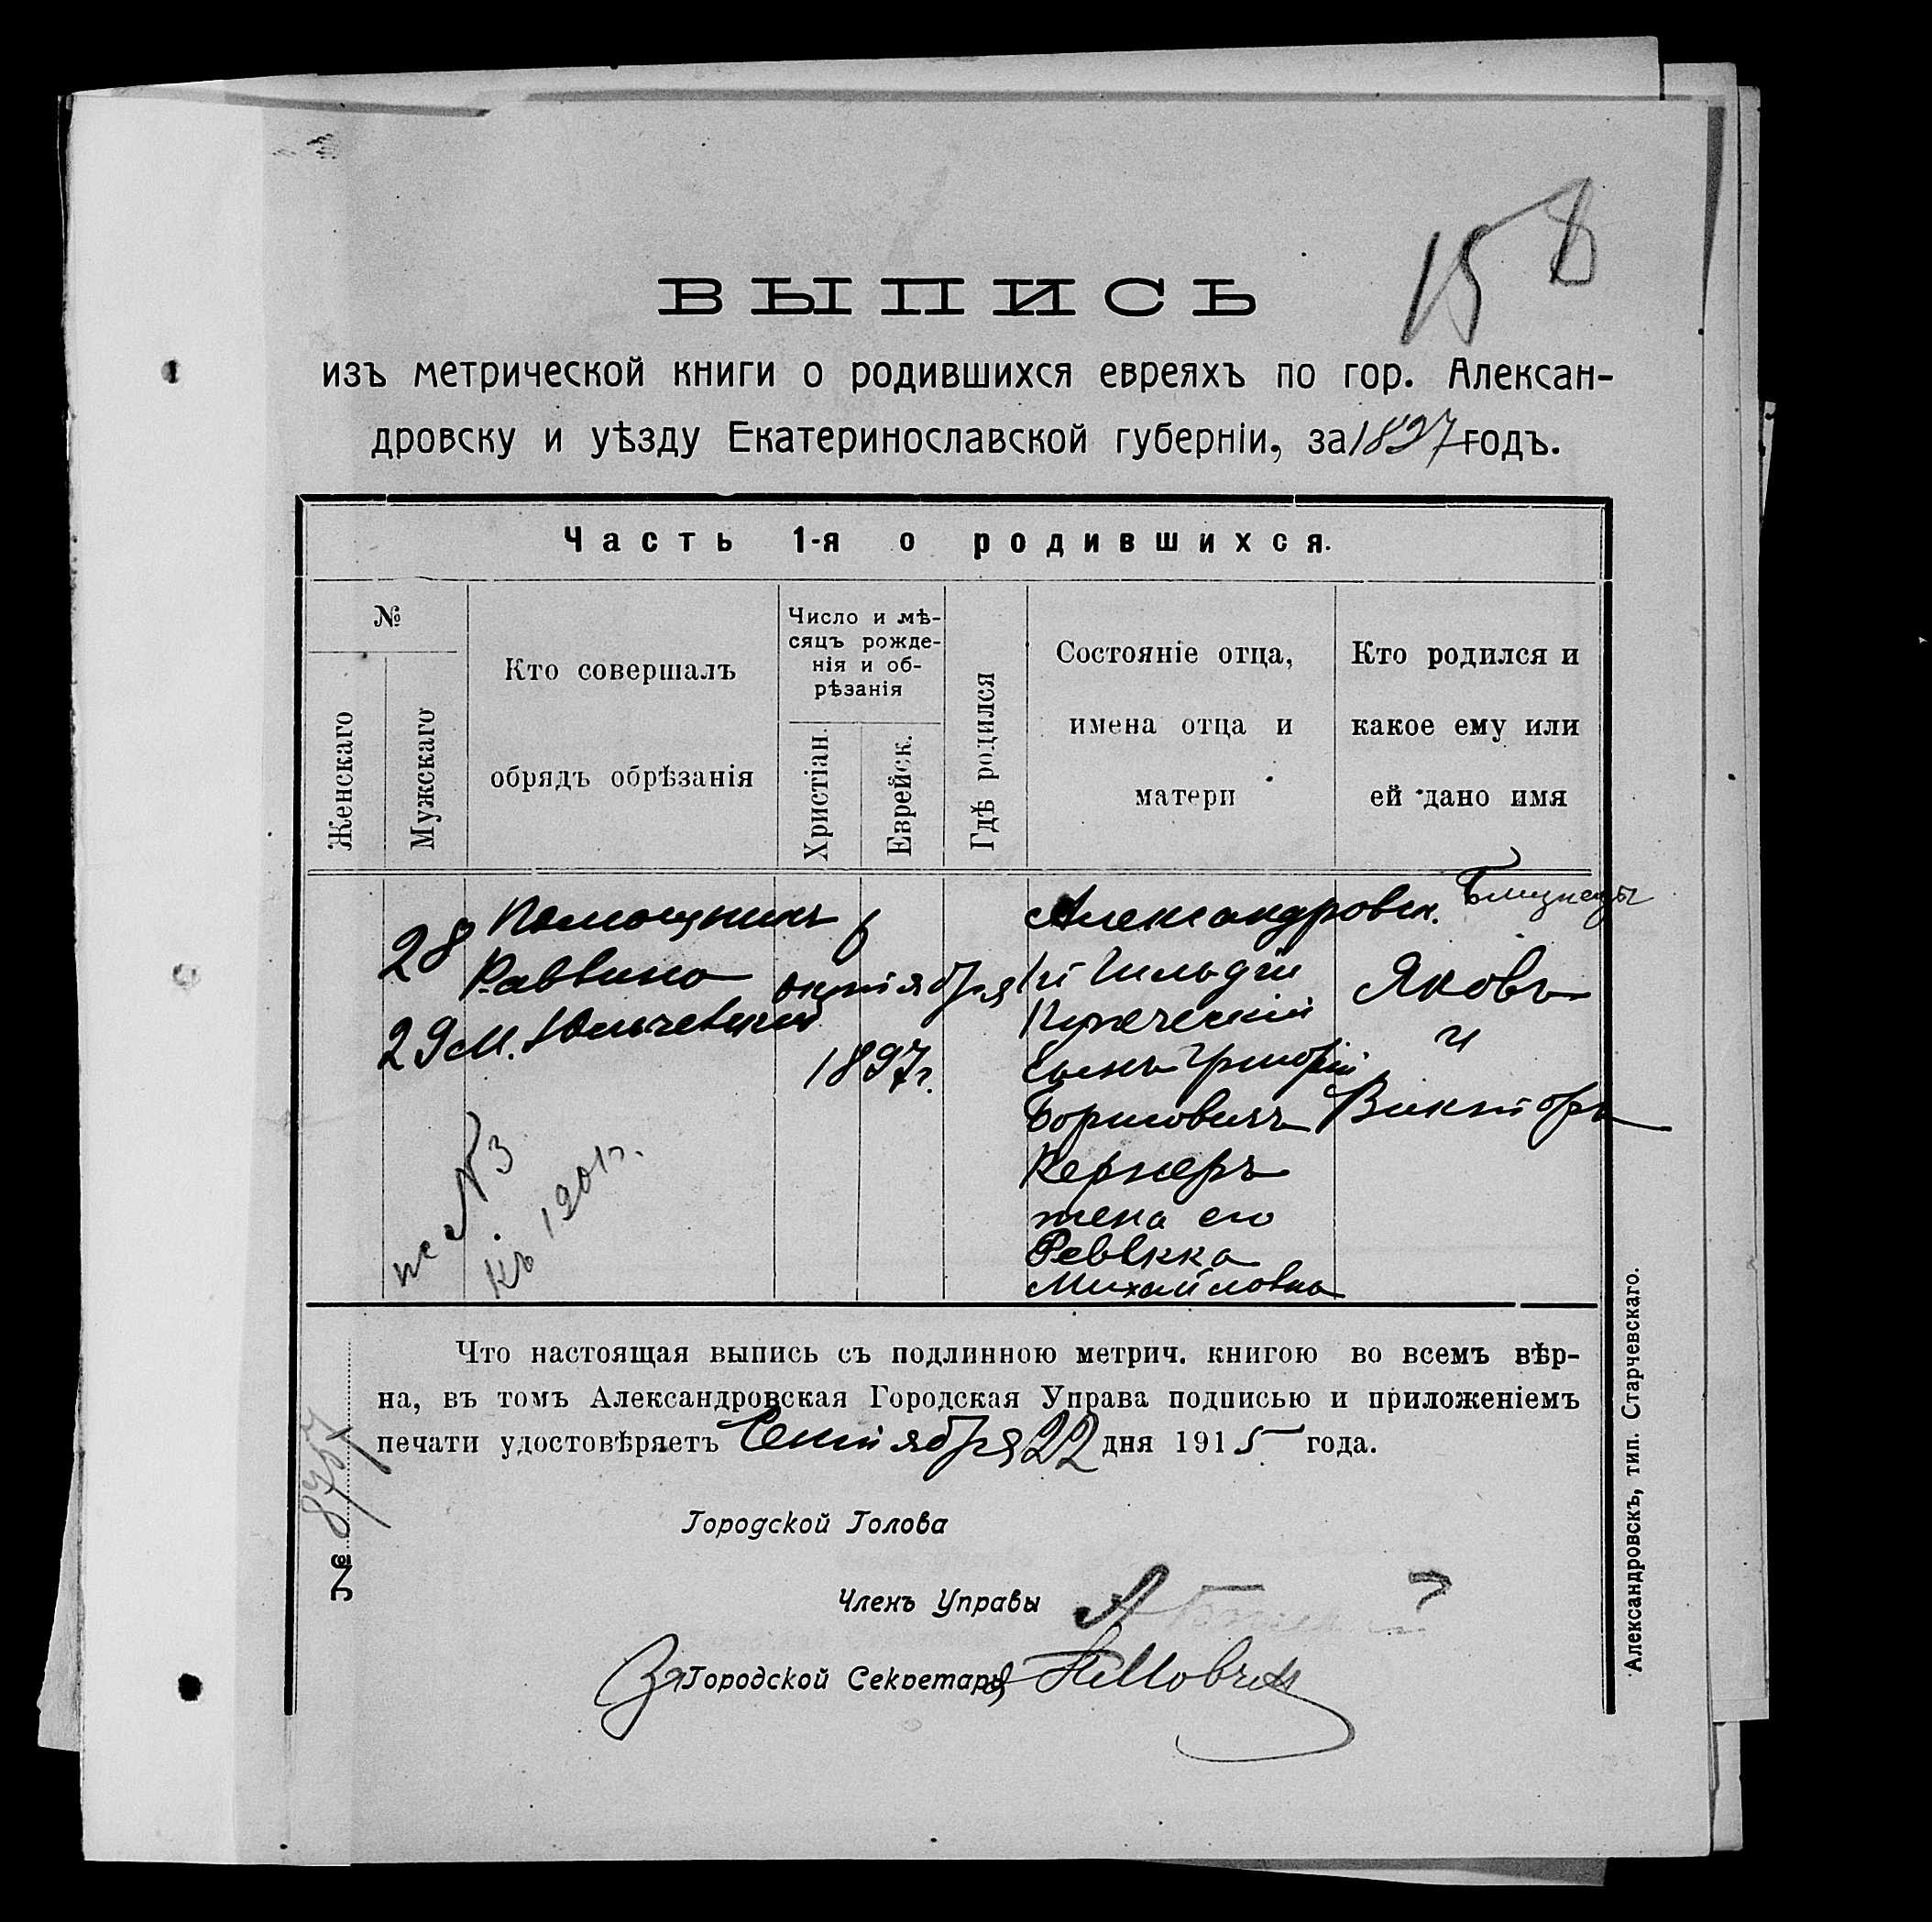 158
ВЫПИСЬ
изъ метрической книги о родившихся евреяхъ по гор. Алексан-
дровску и уѣзду Екатеринославской губерніи, за 1897 годъ.
Часть 1-я о родившихся.
№
Женскаго
Мужскаго
Кто совершалъ
обрядъ обрѣзанія
Число и мѣ-
сяцъ рожде-
нія и об-
рѣзанія
Христіан.
Еврейск.
Гдѣ родился
Состояніе отца,
имена отца и
матери
Кто родился и
какое ему или
ей дано имя
28
29
Помощникъ
Раввина
М.
6
октября
1897г.
Александровск.
1й гильдіи
Купеческій
Сынъ Григорій
Борисовичъ
Кернеръ
жена его
Ревекка
Михайловна
Близнецы
Яковъ
и
Викторъ
№3
къ 1901г.
Что настоящая выпись съ подлинною метрич. книгою во всемъ вѣр-
на, въ томъ Александровская Городская Управа подписью и приложеніемъ
печати удостовѣряетъ Сентября 22 дня 1915 года.
№ 8757
Городской Голова
Членъ Управы
За Городской Секретарь
Александровскъ, тип. Старчевскаго.